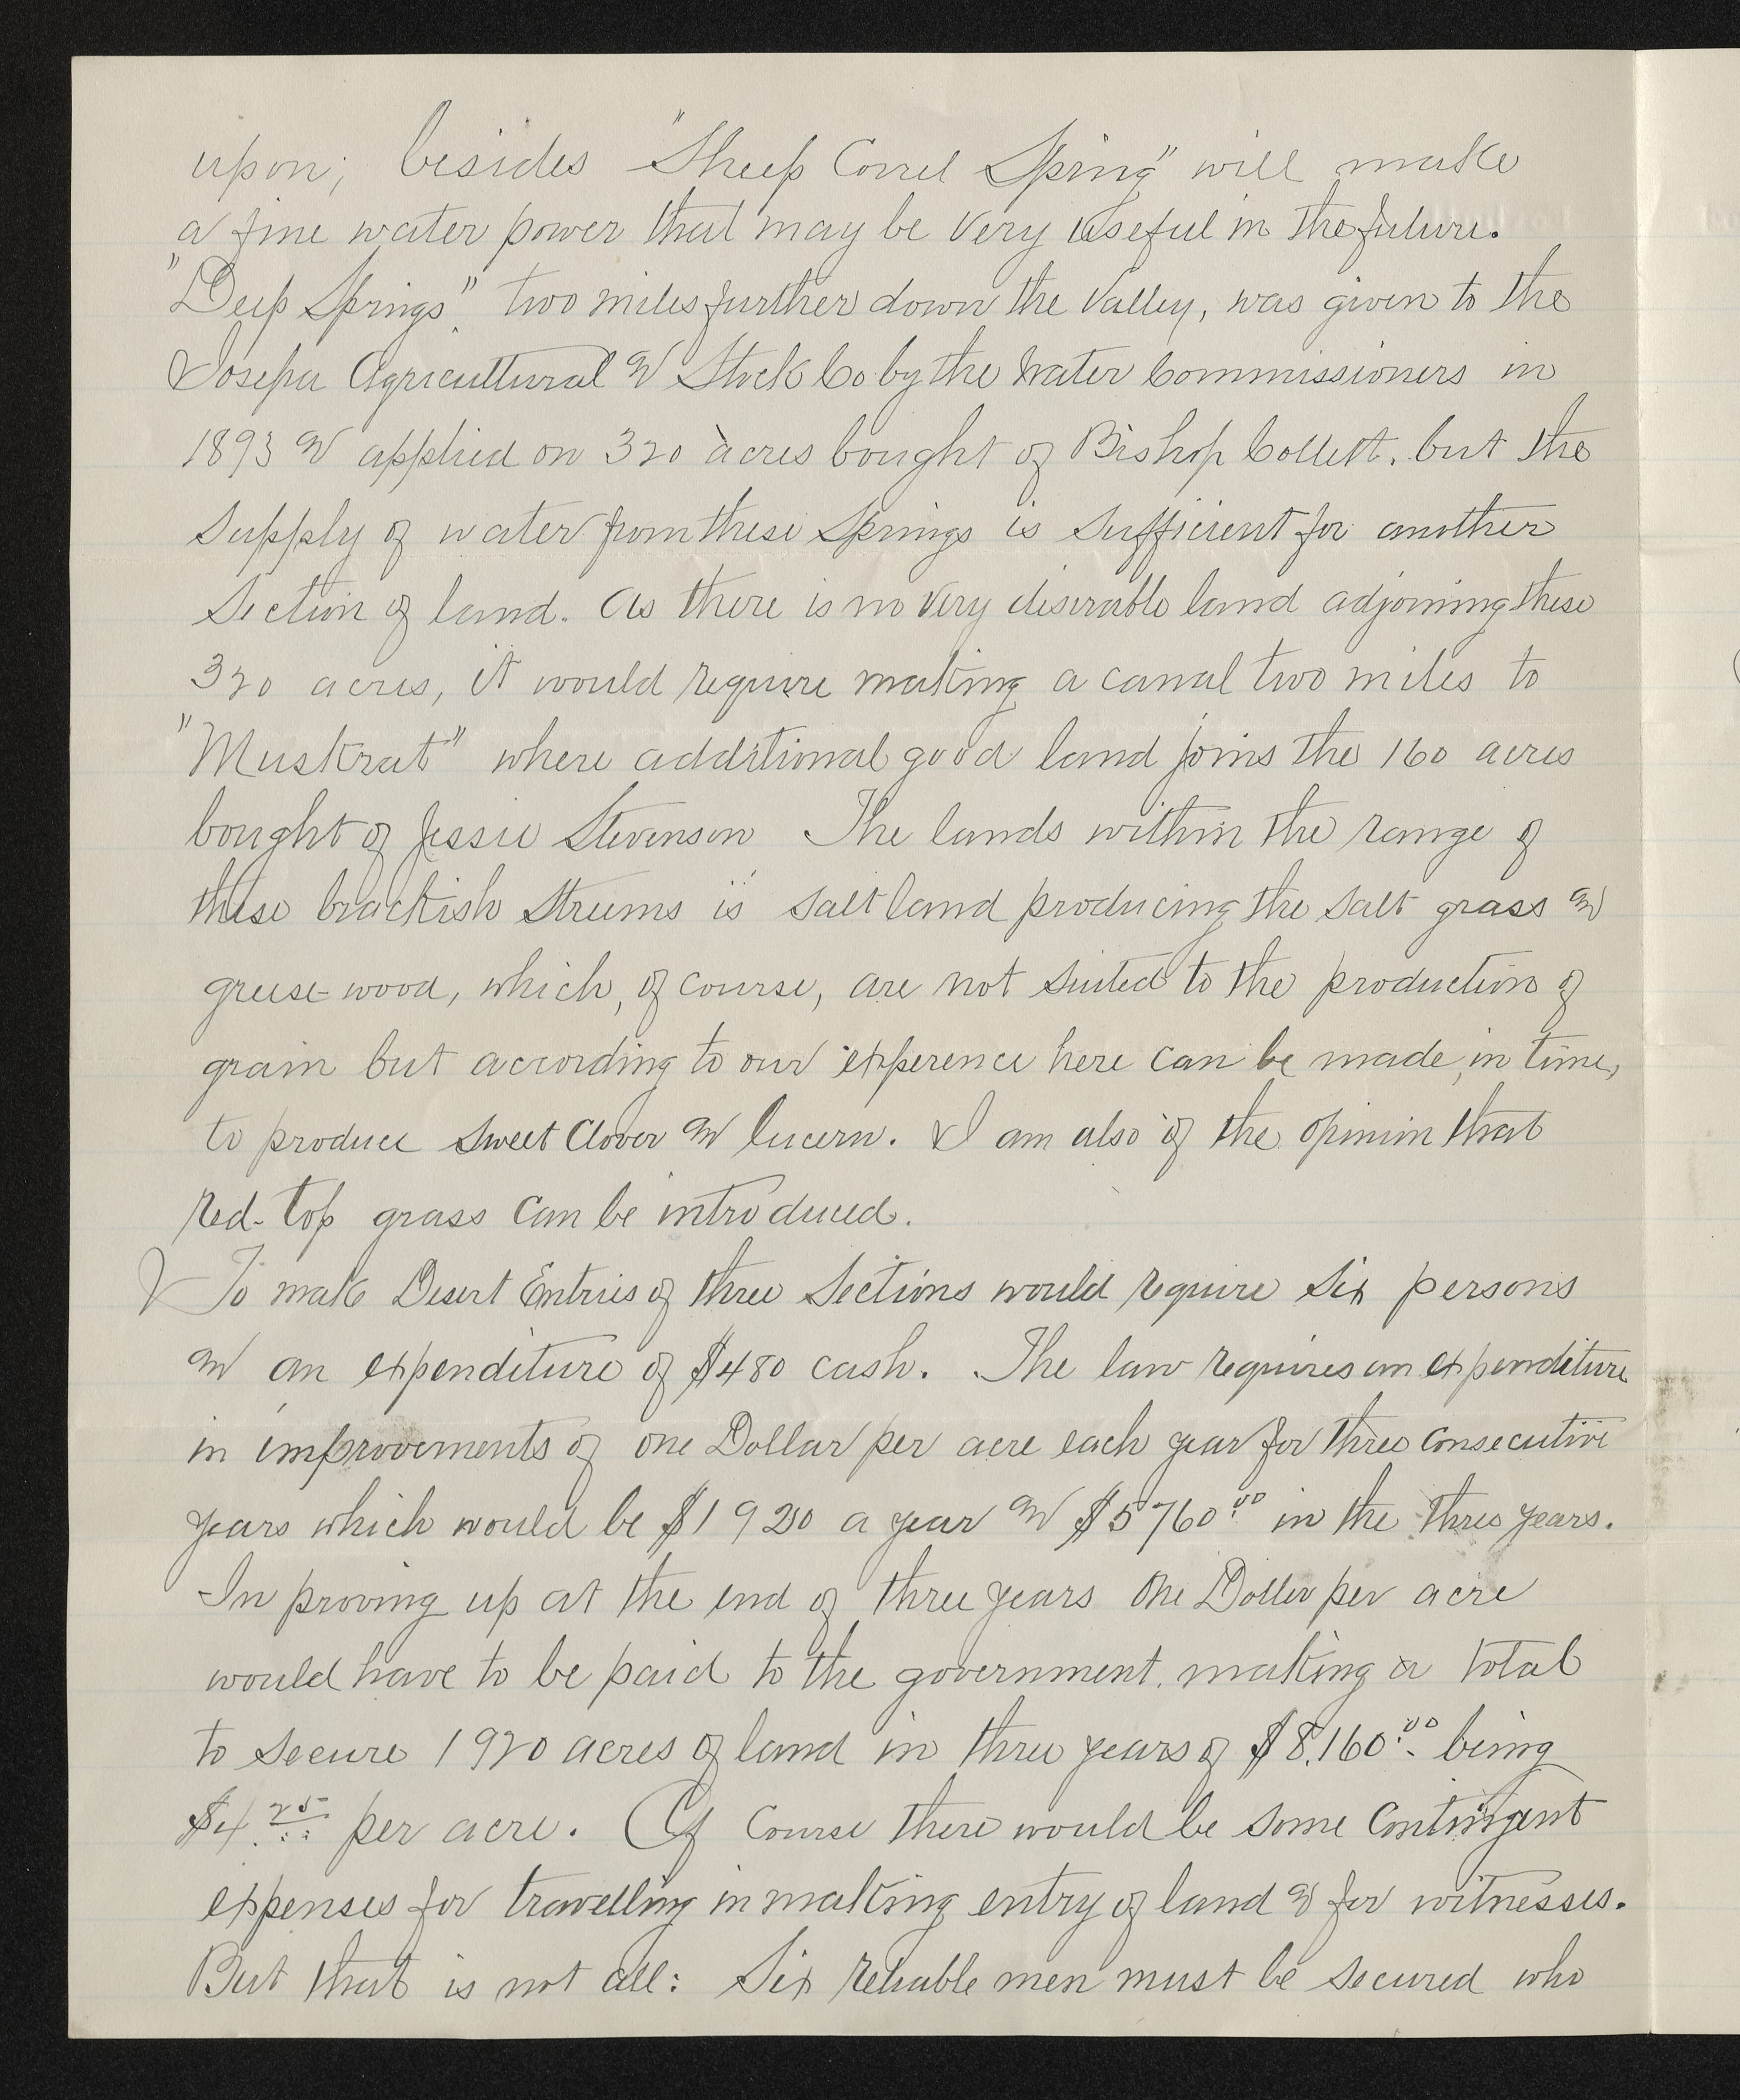 upon; besides "Sheep Correl Spring" will make
a fine water power that may be very useful in the future.
"Deep Springs" two miles further down the valley, was given to the
Iosepa Agricultural & Stock Co by the Water Commissioners in
1893 & applied on 320 acres bought of Bishop Collett, but the
supply of water from these Springs is sufficient for another
Section of land. As there is no very desirable land adjoining these
320 acres, it would require making a canal two miles to
"Muskrat" where additional good land joins the 160 acres
bought of Jessie Stevenson The lands within the range of
these brackish streams is salt land producing the salt grass &
grease-wood, which, of course, are not suited to the production of
grain but according to our experence here can be made, in time,
to produce sweet Clover & lucern. I am also of the opinion that
red-top grass can be introduced.
To make Desert Entries of three Sections would require six persons
& an expenditure of $480 cash. The law requires an expenditure
in improvements of one Dollar per acre each year for three consecutive
years which would be $1920 a year & $5760.00 in the three years.
In proving up at the end of three years one Dollar per acre
would have to be paid to the government, making a total
to secure 1920 acres of land in three years of $8,160.00 being
$4.25 per acre. Of course there would be some contingent
expenses for travelling in making entry of land & for witnesses.
But that is not all: Six reliable men must be secured who